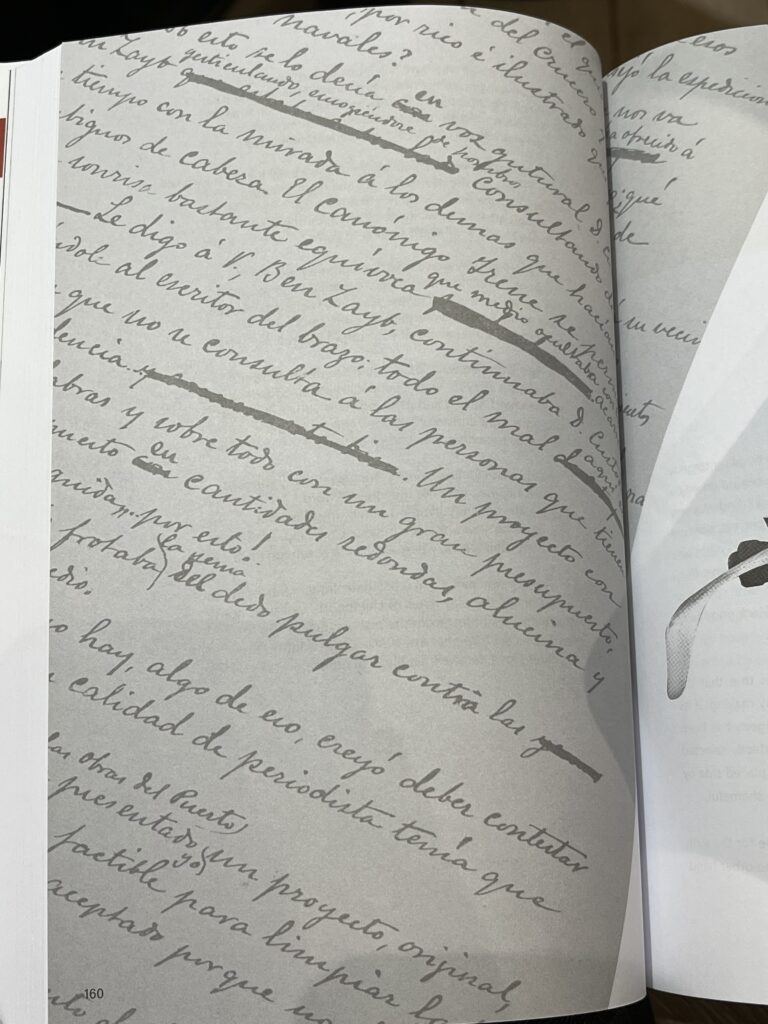 a del crucero
el que
¿por rico é ilustrado
navales?
esto se lo decía en voz gutural D.
Zayb gesticulando, encogiéndose de hombros consultando
tiempo con la mirada á los demas que hacían
biguos de cabeza. El canónigo Irene se
sonrisa bastante equívoca que medio ocultaba con
— Le digo á V., Ben Zayb, continuaba D.
al escritor del brazo; todo el mal aqui
que no se consulta á las personas que tienen
dencia. Un proyecto con
abras y sobre todo con un gran presupuesto,
en cantidades redondas, alucina y
guida... por esto!
frotaba la yema del dedo pulgar contra las
edio.
o hay, algo de eso, creyó deber contestar
calidad de periodista tenía que
las obras del Puerto
presentado yo un proyecto, original,
factible para limpiar la
aceptado porque no
160
esos
la espedición
nos va
ofrecido á
¿qué
de